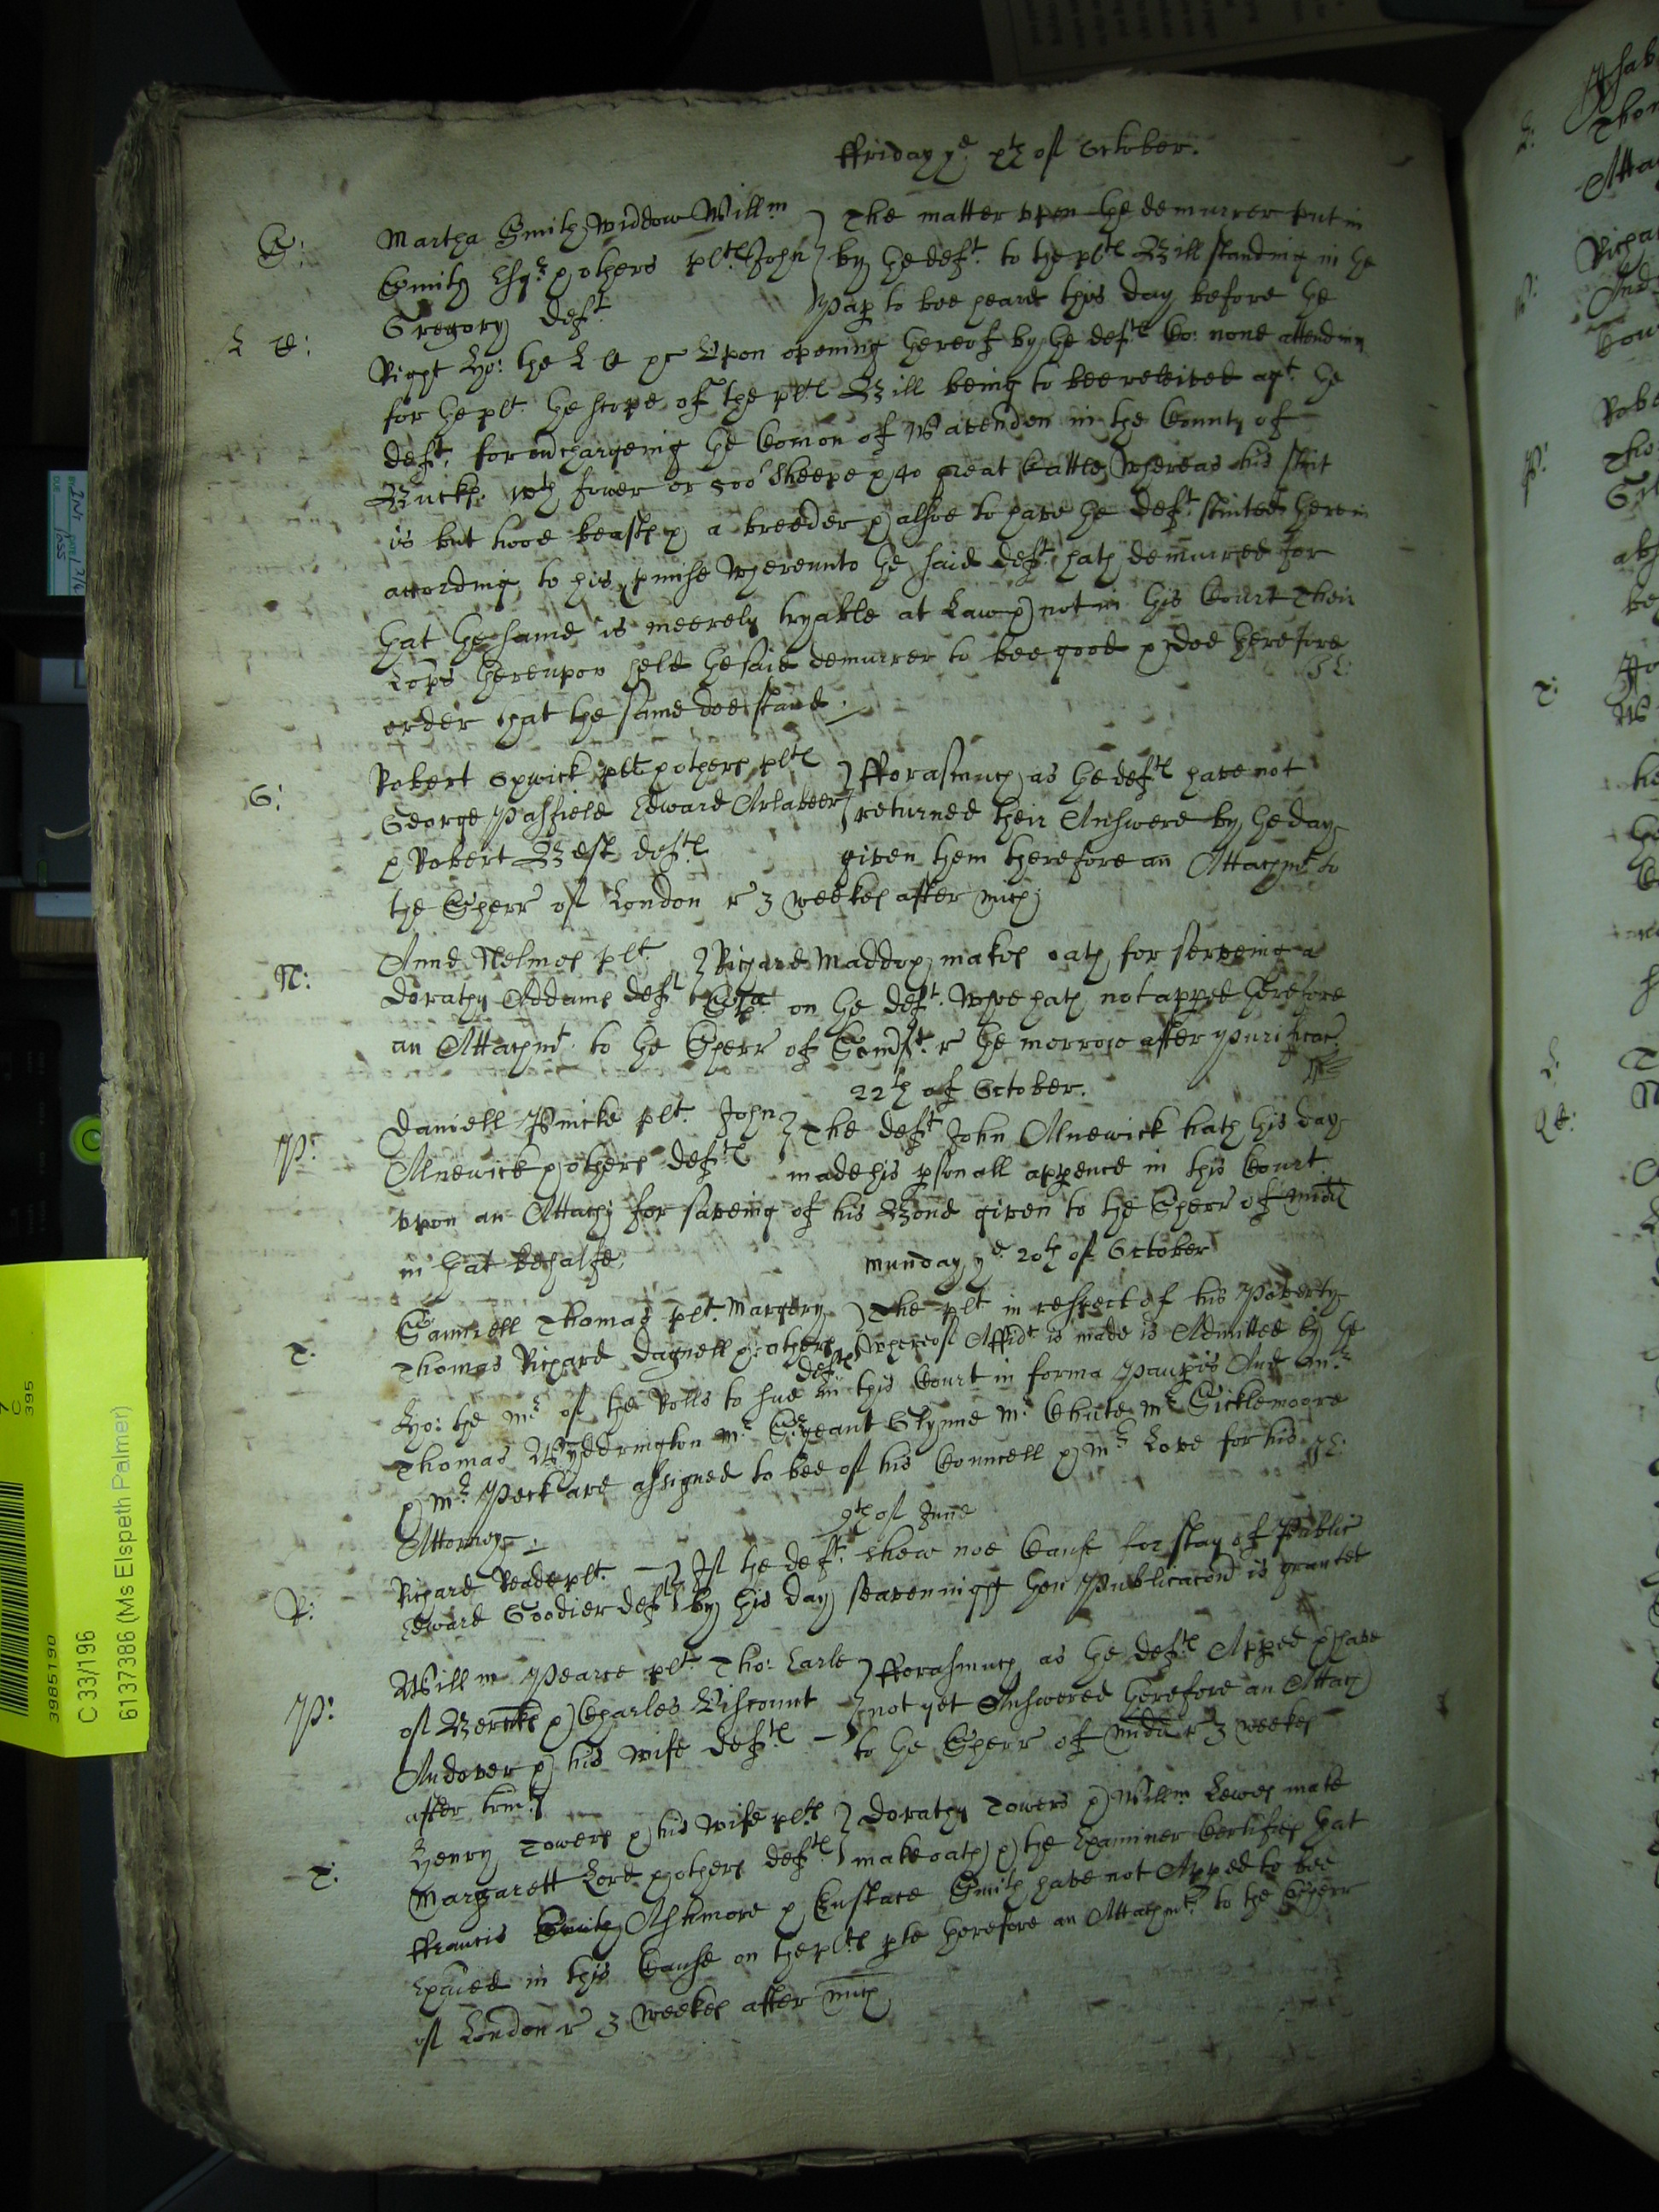 ffriday ye xth of October.
S: Martha Smith Widdow Willm } The matter upon the demurrer put in
Smith Esqr & others plts John } by the deft. to the plts Bill standing in the
Gregory deft } Pap to bee heard this day before the
L C: Right Ho: the L C &c Upon opening thereof by the defts Co: none attending
for the plt. the scope of the plts Bill being to bee releived agt. the
deft. for the Comon of Wavenden in the County of
Buckes. wth fower or 500 Sheepe & 40 great Cattle Whereas his stint
is but twoe beasts & a breeder & alsoe to have the deft. stinted therein
according to his pmise Whereunto the said deft. hath demurred for
that the same is meerely tryable at Law & not in this Court Their
Lopps thereupon held the said demurrer to bee good & doe therefore
order that the same doe stand.
G: Robert plt & others plts } fforasmuch as the defts have not
George Pasfield Edward } returned their Answere by the day
& Robert Best defts given them therefore an Attachmt to
the Sherr of London r 3 weekes after mich
N: Anne Nelmes plt. } Richard Maddox makes oath for serveing a
Dorathy Addams deft } Spa on the deft. Whoe hath not apped therefore
an Attachmt. to the Sherr of Somst. r the morrow after Purificac
22th of October.
P: Daniell Pincke plt. John } The deft John Alnewick hath this day
Alnewick & others defts made his psonall appence in this Court
upon an Attach for saveing of his Bond given to the Sherr of Midd
in that behalfe.
Munday ye 20th of October
T: Samuell Thomas plt. Margery } The plt in respect of his Poverty
Thomas Richard Dagnell & others defts } Whereof Affidt is made is Admitted by the
Ho: the Mr of the Rolls to sue in this Court in forma Paupis And Mr
Thomas Widdrington Mr Serjeant Glynne Mr Chute Mr Sicklemoore
& Mr Peck are assigned to bee of his Councell & Mr Love for his
Attorney.
9th of June
R: Richard Reade plt. } If the deft. shew noe Cause for stay of Public
Edward Goodier deft } by this day seavennight then Publicacon is granted
P: Willm Pearce plt. Tho: Earle } fforasmuch as the defts Apped & have
of Bercks & Charles Viscount } not yet Answered therefore an Attach
Andover & his Wife defts } to the Sherr of Midd r 3 weekes
after trint
T: Henry Towers & his Wife plts } Dorathy Towers & Willm Lewes make
Margarett Lord & others defts } make oath & the Examiner Certifies that
ffrancis Smith Ashmore & Eustace Smith have not Apped to bee
Exaied in this Cause on the plts pte therefore an Attachmt. to the Sherr
of London r 3 weekes after mich
3985190
C 33/196
6137386 (Ms Elspeth Palmer)